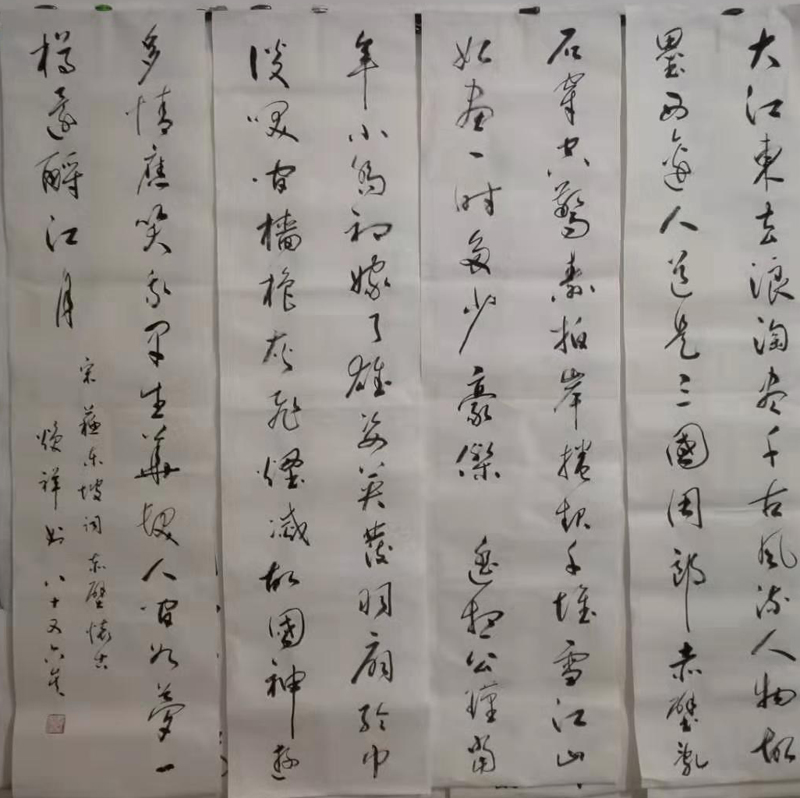 大江東去浪淘盡千古風流人物故
壘西邊人道是三國周郎赤壁亂
石穿空驚濤拍岸捲起千堆雪江山
如畫一時多少豪傑 遙想公瑾當
年小喬初嫁了雄姿英發羽扇綸巾
談笑間檣櫓灰飛煙滅故國神遊
多情應笑我早生華髮人間如夢一
樽還酹江月
宋蘇東坡詞赤壁懷古
煥祥書 八十又六歲